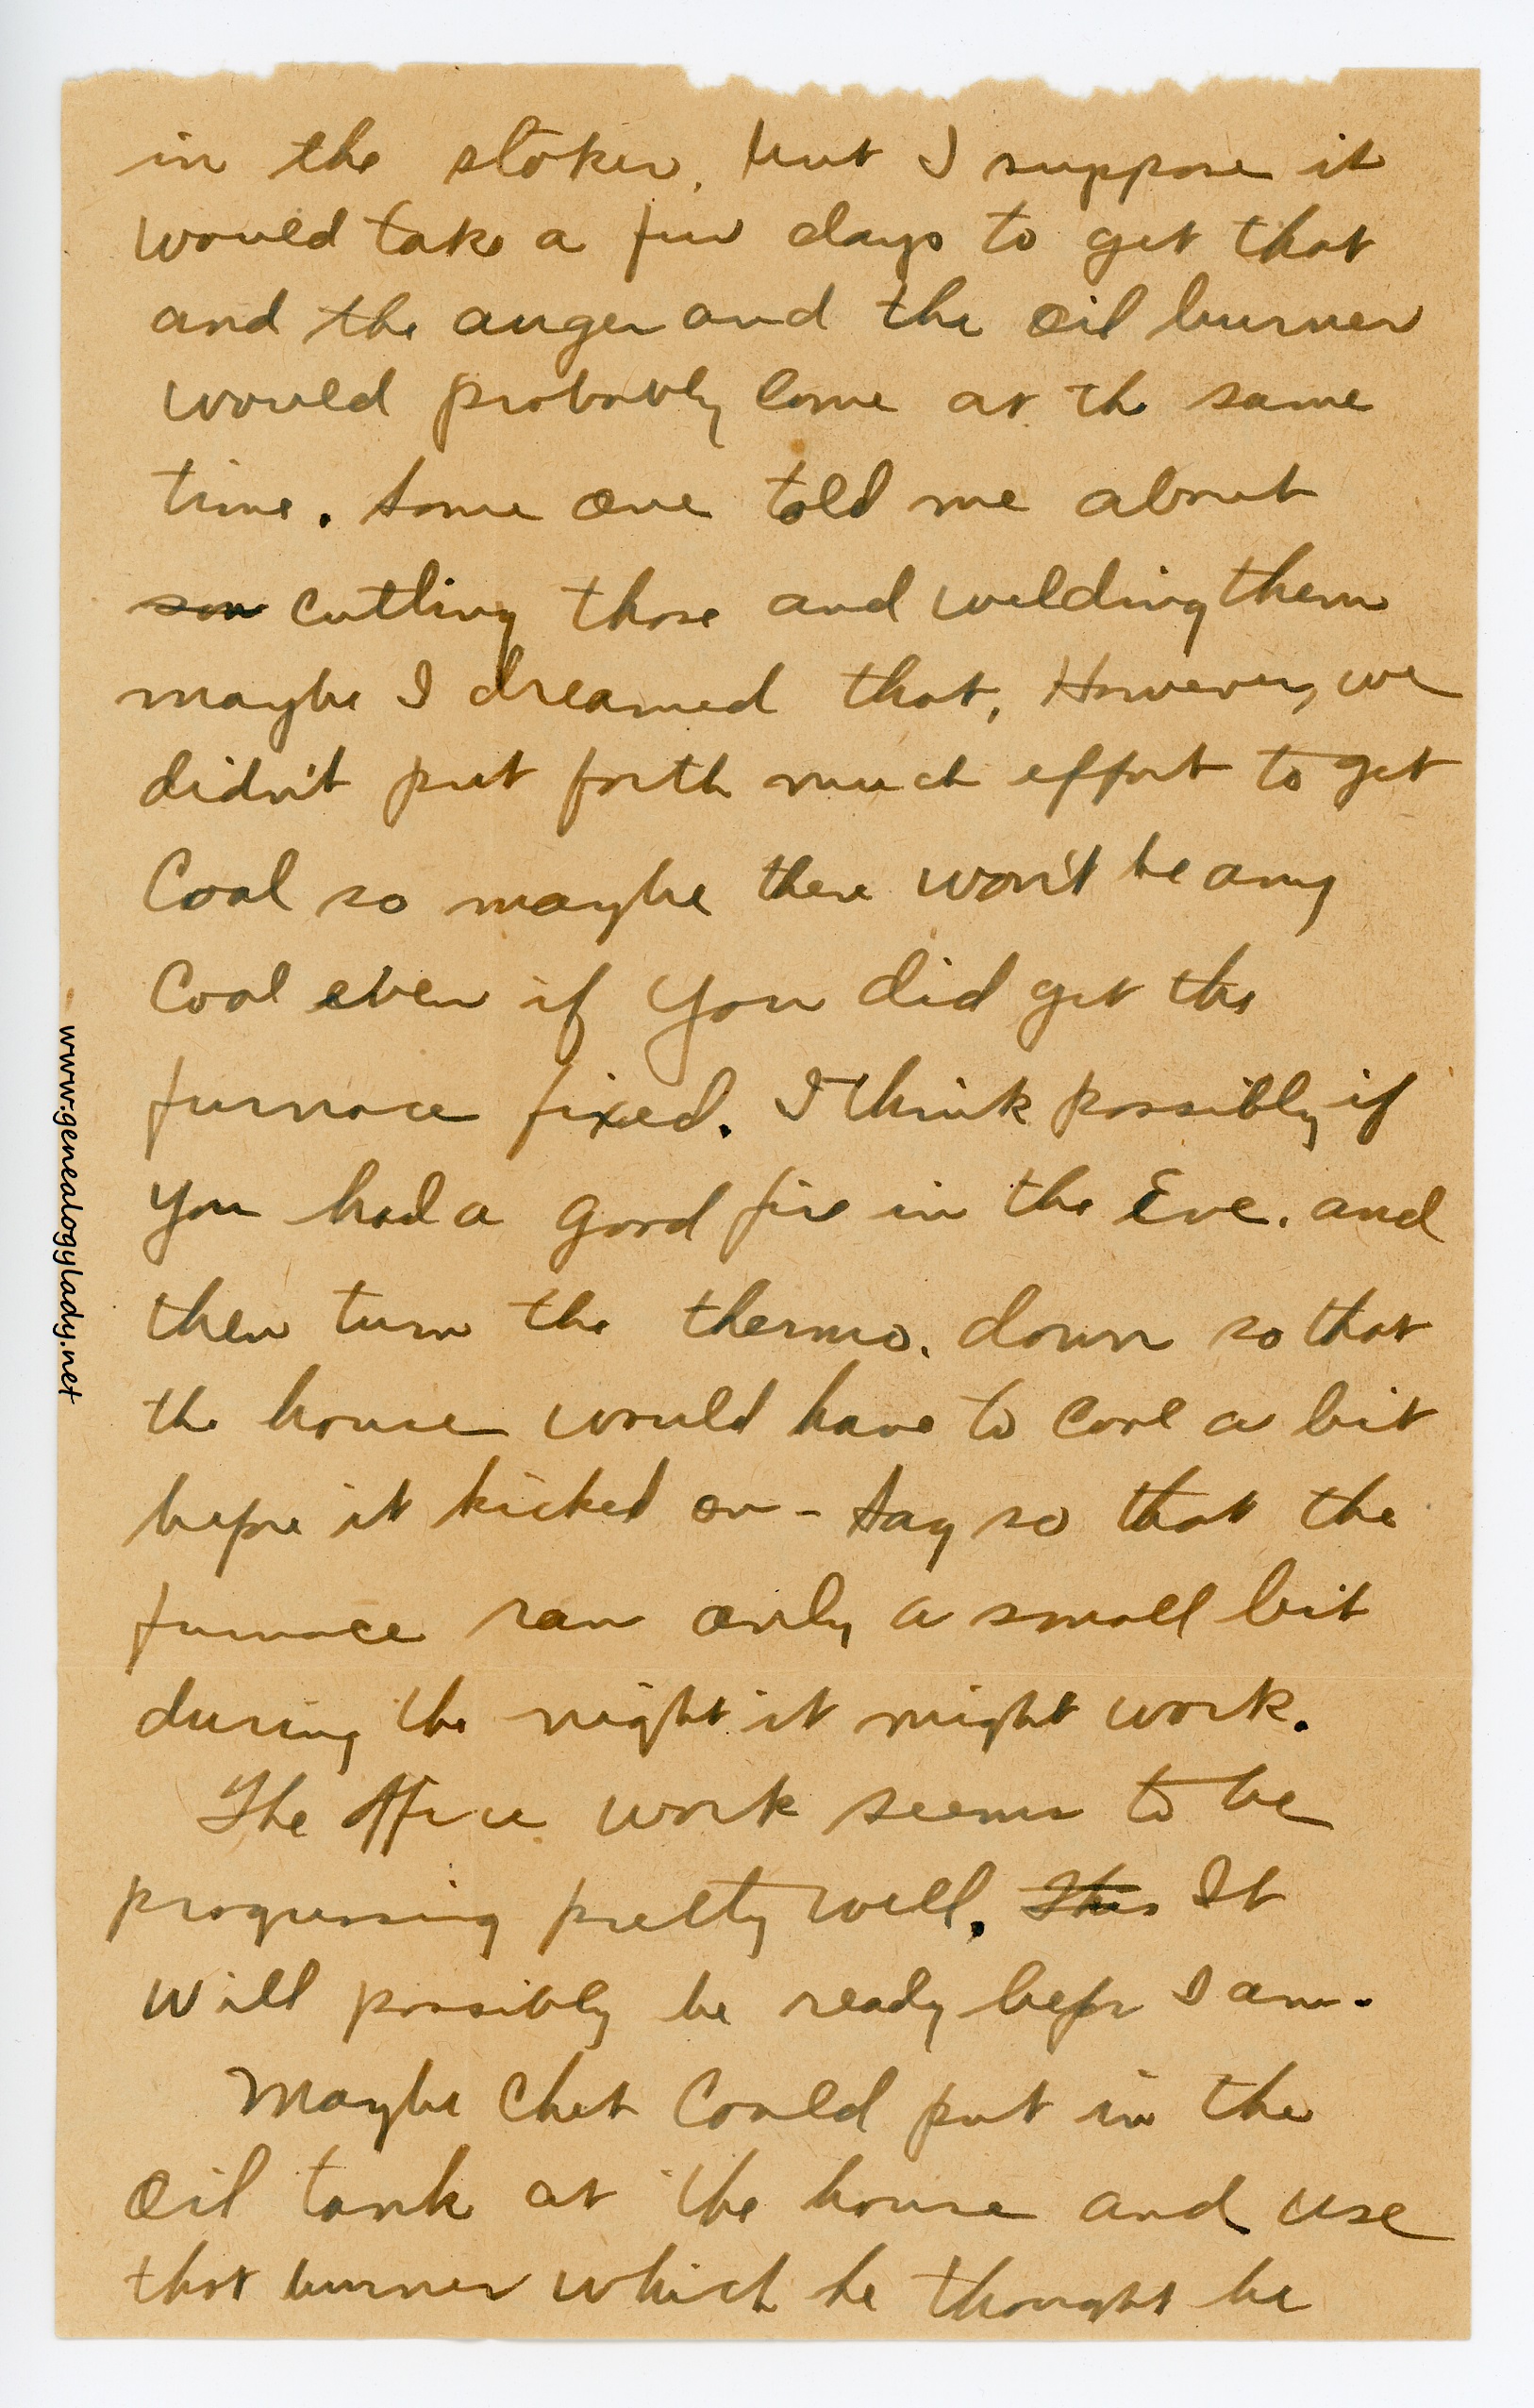 in the stoker, but I suppose it
would take a few days to get that
and the auger and the oil burner
would probably come at the same
time. Some one told me about
son cutting those and welding them
maybe I dreamed that. However, we
didn't put forth much effort to get
Coal so maybe there won't be any
Coal even if you did get the
furnace fixed. I think possibly if
you had a good fire in the Eve. and
then turn the thermo. down so that
the house would have to cool a bit
before it kicked on - Say so that the
furnace ran only a small bit
during the night it might work.
The office work seems to be
progressing pretty well. This It
will possibly be ready before I am.
Maybe Chet could put in the
oil tank at the house and use
that burner which he thought he
www.genealogylady.net